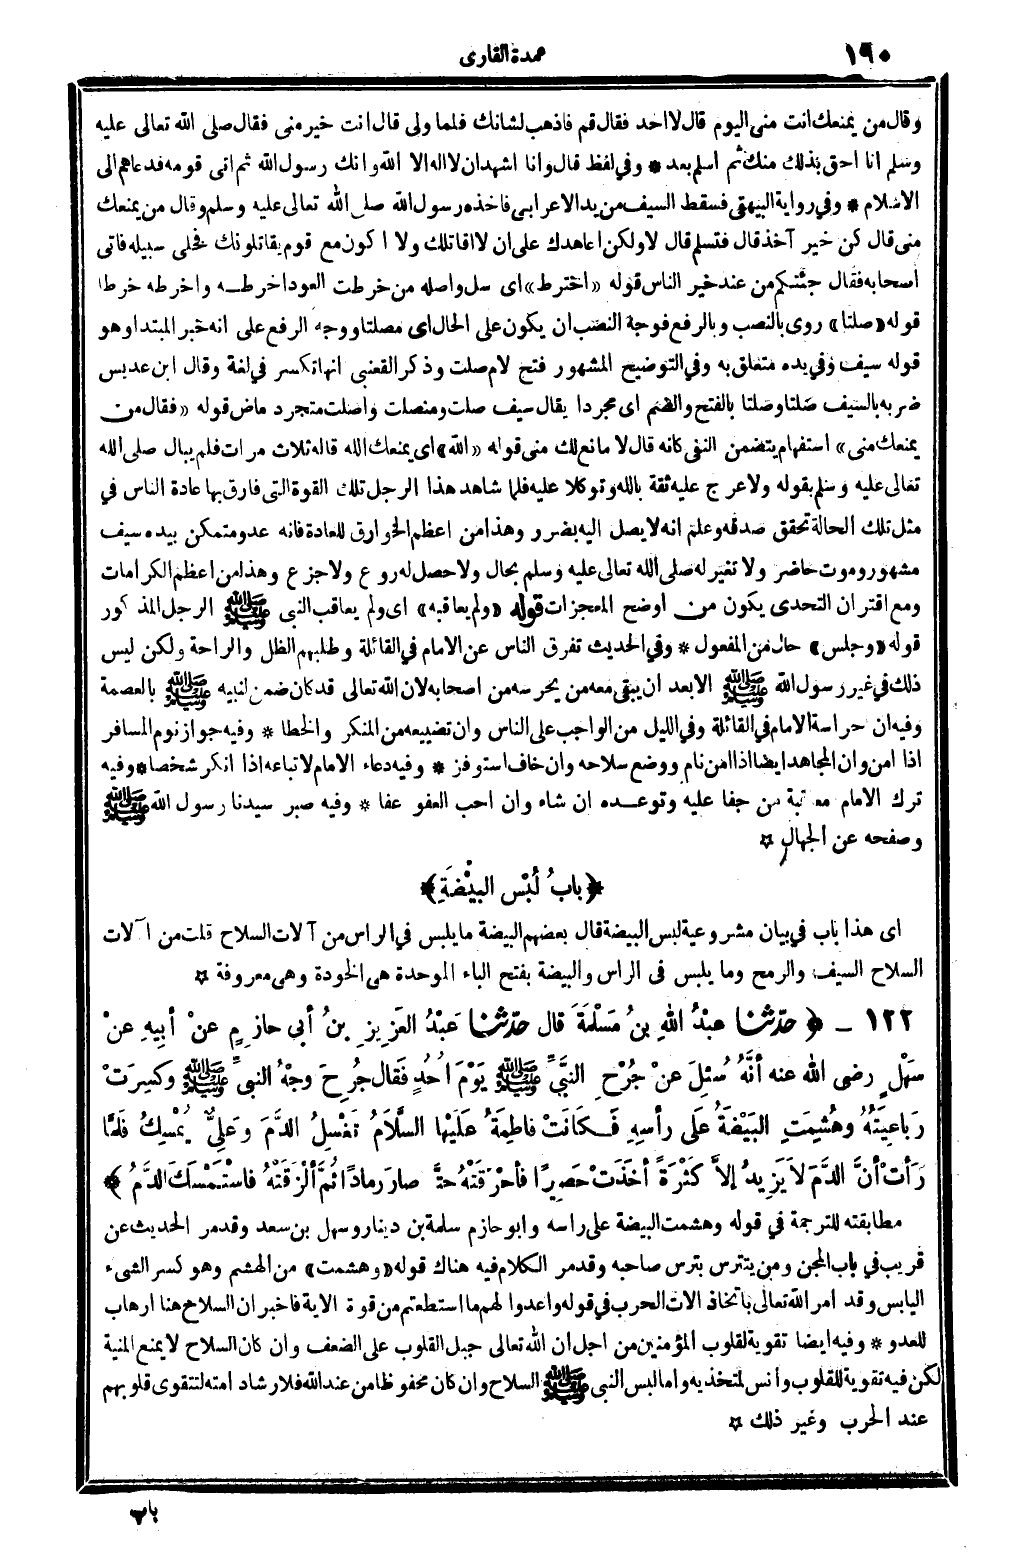 ١٩٠
عمدة القارى
وقال من يمنعك انت منى اليوم قال لا احد فقال قم فاذهب لشانك فلما ولى قال انت خير منى فقال صلى الله تعالى عليه
وسلم انا احق بذلك منك ثم اسلم بعد * وفي لفظ قال وانا اشهد ان لا اله الا الله وانك رسول الله ثم اتى قومه فدعاهم الى
الاسلام * وفي رواية البيهقى فسقط السيف من يد الاعرابى فاخذه رسول الله صلى الله تعالى عليه وسلم وقال من يمنعك
منى قال كن خير آخذ قال فتسلم قال لا ولكن اعاهدك على ان لا اقاتلك ولا اكون مع قوم يقاتلونك فخلى سبيله فاتى
اصحابه فقال جئتكم من عند خير الناس قوله «اخترط» اى سل واصله من خرطت العود اخرطه واخرطه خرطا
قوله «صلتا» روى بالنصب وبالرفع فوجه النصب ان يكون على الحال اى مصلتا ووجه الرفع على انه خبر المبتدا وهو
قوله سيف وفي يده متعلق به وفي التوضيح المشهور فتح لام صلت وذكر القعنبى انها تكسر في لغة وقال ابن عديس
ضربه بالسيف صلتا وصلتا بالفتح والضم اى مجردا يقال سيف صلت ومنصلت واصلت متجرد ماض قوله «فقال من
يمنعك منى» استفهام يتضمن النفى كانه قال لا مانع لك منى قوله «الله» اى يمنعك الله قاله ثلاث مرات فلم يبال صلى الله
تعالى عليه وسلم بقوله ولا عرج عليه ثقة بالله وتوكلا عليه فلما شاهد هذا الرجل تلك القوة التى فارق بها عادة الناس في
مثل تلك الحالة تحقق صدقه وعلم انه لا يصل اليه بضرر وهذا من اعظم الخوارق للعادة فانه عدو متمكن بيده سيف
مشهور وموت حاضر ولا تغير له صلى الله تعالى عليه وسلم بحال ولا حصل له روع ولا جزع وهذا من اعظم الكرامات
ومع اقتران التحدى يكون من اوضح المعجزات قوله «ولم يعاقبه» اى ولم يعاقب النبى ﷺ الرجل المذكور
قوله «وجلس» حال من المفعول * وفي الحديث تفرق الناس عن الامام في القائلة وطلبهم الظل والراحة ولكن ليس
ذلك في غير رسول الله ﷺ الا بعد ان يبقى معه من يحرسه من اصحابه لان الله تعالى قد كان ضمن لنبيه ﷺ بالعصمة
وفيه ان حراسة الامام في القائلة وفي الليل من الواجب على الناس وان تضييعه من المنكر والخطا * وفيه جواز نوم المسافر
اذا امن وان المجاهد ايضا اذا امن نام ووضع سلاحه وان خاف استوفز * وفيه دعاء الامام لاتباعه اذا انكر شخصا * وفيه
ترك الامام معاتبة من جفا عليه وتوعده ان شاء وان احب العفو عفا * وفيه صبر سيدنا رسول الله ﷺ
وصفحه عن الجهال ۞
﴿بابُ لُبْسِ البيْضَةِ﴾
اى هذا باب في بيان مشروعية لبس البيضة قال بعضهم البيضة ما يلبس في الراس من آلات السلاح قلت من آلات
السلاح السيف والرمح وما يلبس فى الراس والبيضة بفتح الباء الموحدة هى الخودة وهى معروفة ۞
١٢٢ ـ ﴿ حدّثنا عبْدُ اللهِ بنُ مَسْلَمَةَ قال حدّثنا عَبْدُ العَزِيزِ بنُ أبى حازِمٍ عنْ أبيهِ عنْ
سَهْلٍ رضى الله عنه أنَّهُ سُئِلَ عنْ جُرْحِ النَّبىِّ ﷺ يَوْمَ أُحُدٍ فَقال جُرِحَ وجْهُ النبىِّ ﷺ وكُسِرَتْ
رَباعِيَتُهُ وهُشِمَتِ البَيْضَةُ على رأسِهِ فَكانَتْ فاطِمَةُ عَلَيْها السَّلاَمُ تَغْسِلُ الدَّمَ وعَلِىٌّ يُمْسِكُ فلَمَّا
رَأتْ أنَّ الدَّمَ لاَ يَزِيدُ إلاَّ كَثْرَةً أخَذَتْ حَصِيرًا فأحْرَقَتْهُ حتَّى صارَ رمادًا ثُمَّ ألْزَقَتْهُ فاسْتَمْسَكَ الدَّمُ ﴾
مطابقته للترجمة في قوله وهشمت البيضة على راسه وابو حازم سلمة بن دينار وسهل بن سعد وقد مر الحديث عن
قريب في باب المجن ومن يتترس بترس صاحبه وقد مر الكلام فيه هناك قوله «وهشمت» من الهشم وهو كسر الشىء
اليابس وقد امر الله تعالى باتخاذ الات الحرب في قوله واعدوا لهم ما استطعتم من قوة الاية فاخبر ان السلاح هنا ارهاب
للعدو * وفيه ايضا تقوية لقلوب المؤمنين من اجل ان الله تعالى جبل القلوب على الضعف وان كان السلاح لا يمنع المنية
لكن فيه تقوية للقلوب وانس لمتخذيه واما لبس النبى ﷺ السلاح وان كان محفوظا من عند الله فلارشاد امته لتتقوى قلوبهم
عند الحرب وغير ذلك ۞
باب